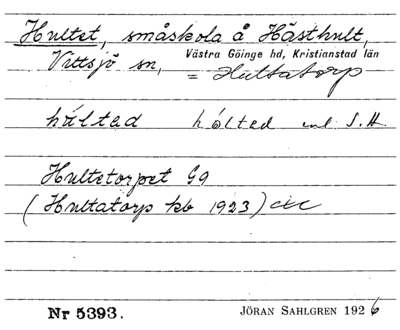 Hultet, småskola å Hästhult,
Vittsjö sn, Västra Göinge hd, Kristianstad län
= Hultatorp
húltad hóltad enl S.H.
Hultetorpet G9
(Hultatorp kb 1923)
Nr 5393. JÖRAN SAHLGREN 1926